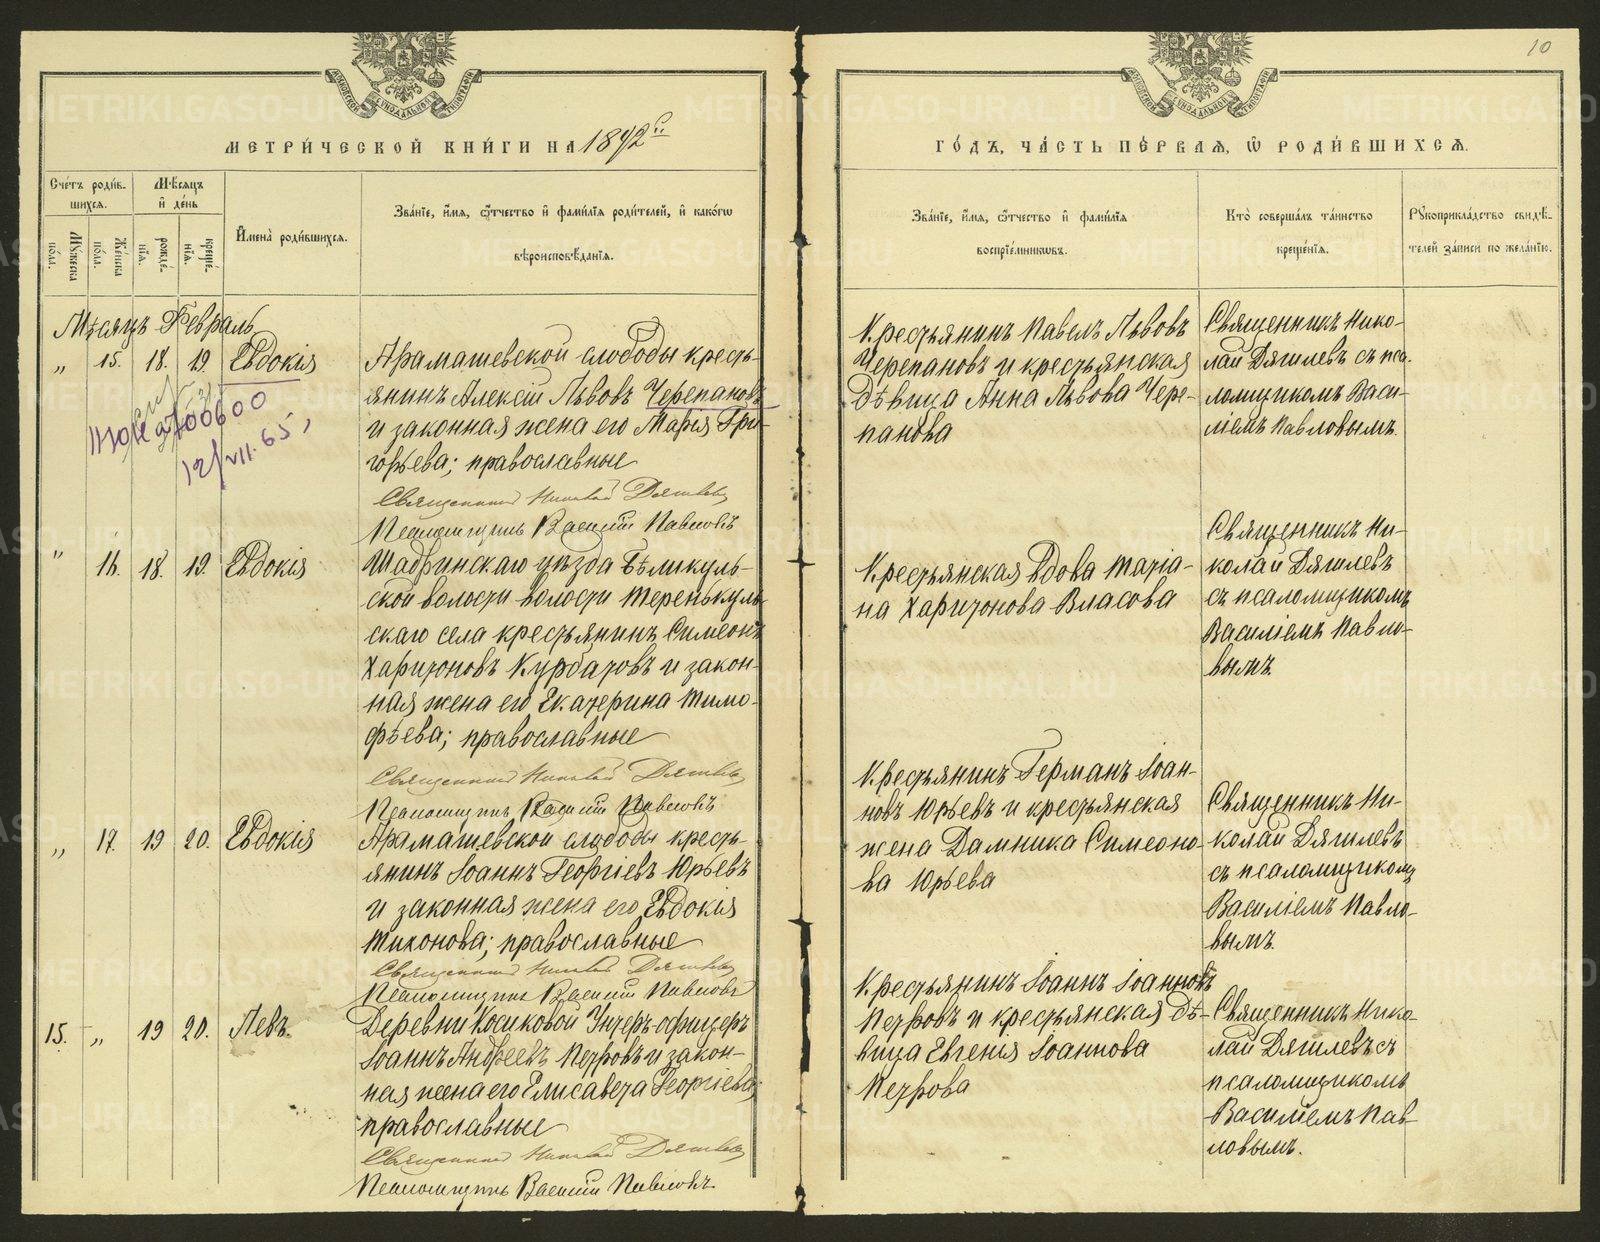 10
МЕТРИ́ЧЕСКОЙ КНИ́ГИ НА 1892й
ГО́ДЪ, ЧА́СТЬ ПЕ́РВАЯ, Ѽ РОДИ́ВШИХСЯ.
Сче́тъ роди́в-
шихся.
Мꙋ́жеска по́ла.
Же́нска по́ла.
Мѣ́сяцъ
и҆ де́нь
рожде́нїя.
креще́нїя.
И҆мена̀ роди́вшихся.
Зва́нїе, и҆́мя, ѻ҆́тчество и҆ фами́лїя роди́телей, и҆ како́гѡ
вѣроисповѣ́данїя.
Зва́нїе, и҆́мя, ѻ҆́тчество и҆ фами́лїя
воспрїе́мникѡвъ.
Кто̀ соверша́лъ та́инство
креще́нїя.
Рꙋкоприкла́дство свидѣ́-
телей за́писи по жела́нїю.
Мѣсяцъ Февраль
" 15. 18. 19. Евдокія
700600
12/VII.65,
Арамашевской слободы кресть-
янинъ Алексій Львовъ Черепановъ
и законная жена его Марія Гри-
горьева; православные
Священникъ Николай Дягилевъ
Псаломщикъ Василій Павловъ
Крестьянинъ Павелъ Львовъ
Черепановъ и крестьянская
дѣвица Анна Львова Чере-
панова
Священникъ Нико-
лай Дягилевъ съ пса-
ломщикомъ Васи-
ліемъ Павловымъ.
" 16. 18. 19. Евдокія
Шадринскаго уѣзда Бѣликуль-
ской волости волости Теренькуль-
скаго села крестьянинъ Симеонъ
Харитоновъ Курбатовъ и закон-
ная жена его Екатерина Тимо-
фѣева; православные
Священникъ Николай Дягилевъ
Псаломщикъ Василій Павловъ
Крестьянская вдова Татіа-
на Харитонова Власова
Священникъ Ни-
колай Дягилевъ
съ псаломщикомъ
Василіемъ Павло-
вымъ.
" 17. 19 20. Евдокія
Арамашевской слободы кресть-
янинъ Іоаннъ Георгіевъ Юрьевъ
и законная жена его Евдокія
Тихонова; православные
Священникъ Николай Дягилевъ
Псаломщикъ Василій Павловъ
Крестьянинъ Германъ Іоан-
новъ Юрьевъ и крестьянская
жена Дамника Симеоно-
ва Юрьева
Священникъ Ни-
колай Дягилевъ
съ псаломщикомъ
Василіемъ Павло-
вымъ.
15. " 19 20. Левъ.
Деревни Косиковой Унтеръ-офицеръ
Іоаннъ Андреевъ Петровъ и закон-
ная жена его Елисавета Георгіева;
православные
Священникъ Николай Дягилевъ
Псаломщикъ Василій Павловъ.
Крестьянинъ Іоаннъ Іоанновъ
Петровъ и крестьянская дѣ-
вица Евгенія Іоаннова
Петрова
Священникъ Нико-
лай Дягилевъ съ
псаломщикомъ
Василіемъ Пав-
ловымъ.
METRIKI.GASO-URAL.RU